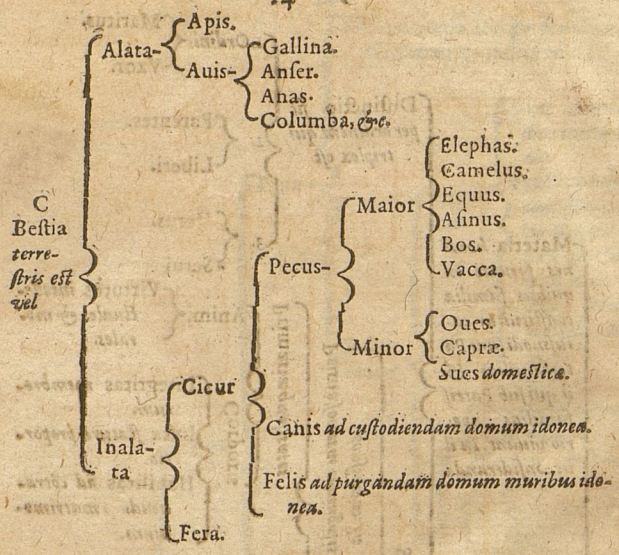 C
Beſtia
terre-
ſtris eſt
vel
Alata-
Apis.
Auis-
Gallina.
Anſer.
Anas.
Columba, &c.
Inala-
ta
Cicur
Pecus-
Maior
Elephas.
Camelus.
Equus.
Aſinus.
Bos.
Vacca.
Minor
Oues.
Capræ.
Sues domeſticæ.
Canis ad cuſtodiendam domum idonea.
Felis ad purgandam domum muribus ido-
nea.
Fera.